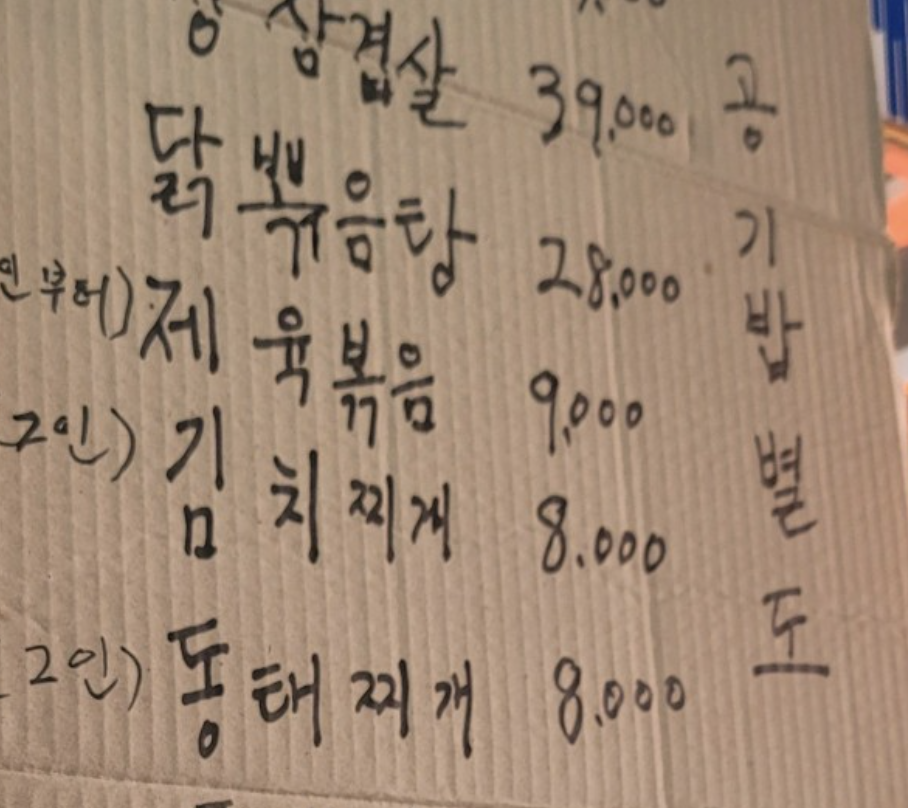 삼겹살 39,000
닭뽂음탕 28,000
인부터) 제육볶음 9,000
2인) 김치찌개 8.000
2인) 동태찌개 8.000
공기밥별도